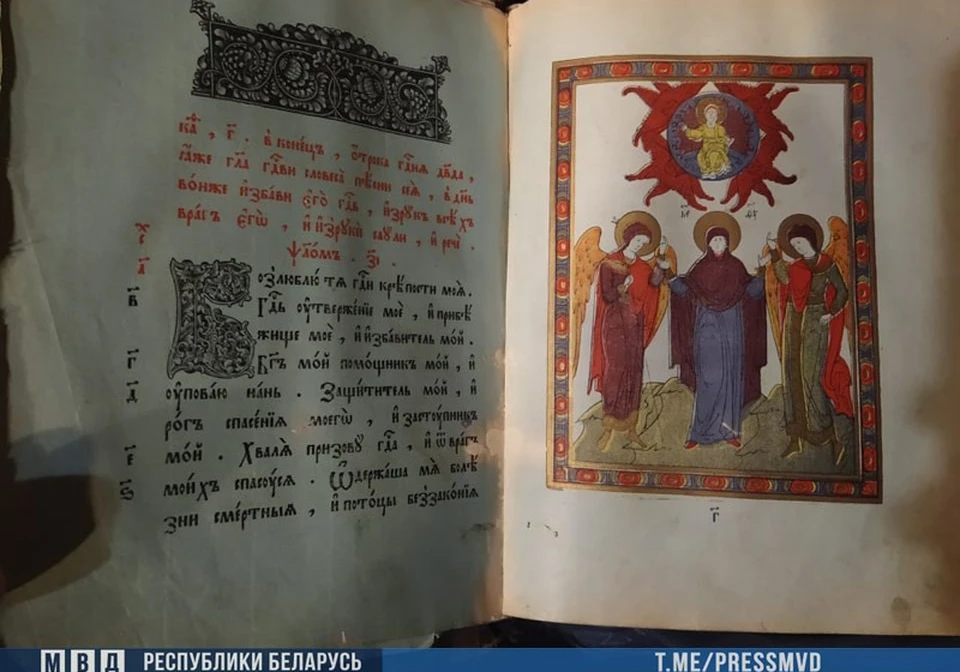 к҃а , г҃ . в̾ коне́цъ , ѻ҆́трока гдⷭ҇ня дв҃да ,
ꙗ҆̀же гл҃а гдⷭ҇ви словеса̀ пѣ́сни сея̀ , в̾ де́нь
во́ньже и҆зба́ви є҆го̀ гдⷭ҇ь , и҆з̾ рꙋ́къ всѣ́хъ
вра́гъ є҆гѡ̀ , и҆ и҆з̾ рꙋкѝ саꙋ́ли , и҆ речѐ .
ѱало́мъ . з҃і .
Возлюблю́ тѧ гдⷭ҇и крѣ́пости моѧ̀ .
Гдⷭ҇ь ѹ҆твержє́нїе моѐ , и҆ прибѣ́
жище моѐ , и҆ и҆зба́витель мо́й .
Бг҃ъ мо́й помо́щникъ мо́й , и҆
ѹ҆пова́ю на́нь . Защи́титель мо́й , и҆
ро́гъ спасе́нїѧ моегѡ̀ , и҆ застꙋ́пникъ
мо́й . Хвалѧ̀ призовꙋ̀ гдⷭ҇а , и҆ ѿ вра́гъ
мои́хъ спасꙋ́сѧ . Ѡ҆держа́ша мѧ̀ болѣ́
зни сме́ртныѧ , и҆ пото́цы беззако́нїѧ
в҃
г҃
д҃
є҃
ѕ҃
г҃
МВД РЕСПУБЛИКИ БЕЛАРУСЬ
T.ME/PRESSMVD